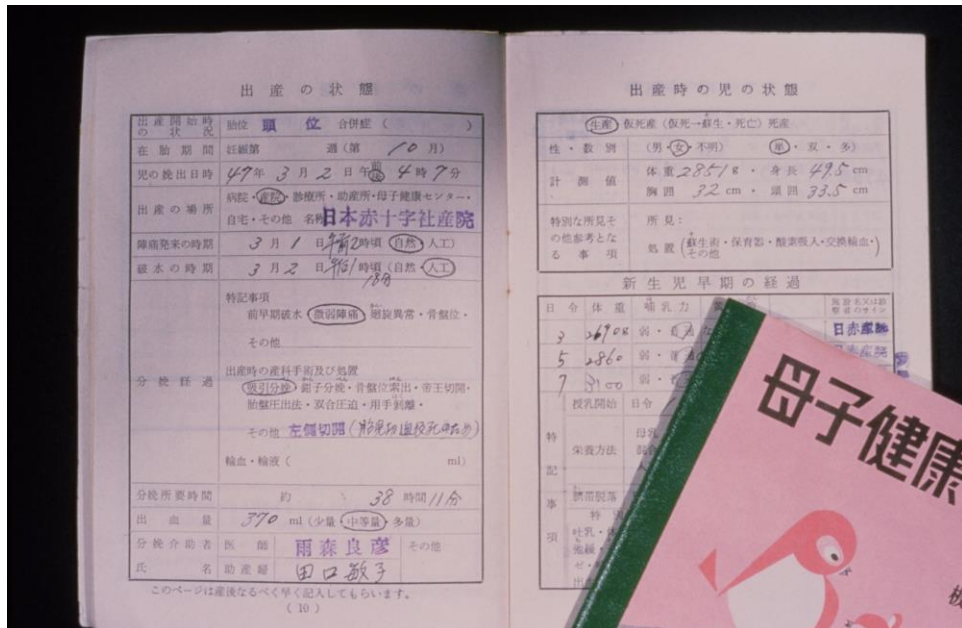 出産の状態
出産開始時の状況 胎位 頭位 合併症 ( )
在胎期間 妊娠第 週 (第 10 月)
児の娩出日時 47年 3月 2日 午前後 4時 7分
出産の場所 病院・産院・診療所・助産所・母子健康センター・
自宅・その他 名称 日本赤十字社産院
陣痛発来の時期 3月 1日 午前2時頃 (自然・人工)
破水の時期 3月 2日 時頃 (自然・人工)
18分
分娩経過
特記事項
前早期破水・微弱陣痛・廻旋異常・骨盤位・
その他
出産時の産科手術及び処置
吸引分娩・鉗子分娩・骨盤位索出・帝王切開・
胎盤圧出法・双合圧迫・用手剥離・
その他 左側切開
輸血・輸液 ( ml)
分娩所要時間 約 38時間11分
出血量 370 ml (少量・中等量・多量)
分娩介助者氏名 医師 雨森良彦 その他
助産婦 田口敏子
このページは産後なるべく早く記入してもらいます。
( 10 )
出産時の児の状態
生産 仮死産 (仮死→蘇生・死亡) 死産
性・数別 (男・女・不明) (単・双・多)
計測値 体重 2851g・身長 49.5 cm
胸囲 32 cm・頭囲 33.5 cm
特別な所見その他参考となる事項 所見:
処置 (蘇生術・保育器・酸素吸入・交換輸血・
その他
新生児早期の経過
日令 体重 哺乳力
3 2690g 弱・ 日赤産院
5 2860 弱・普通 日赤産院
7 3100 弱・
特記事項
授乳開始 日令
栄養方法 母乳
臍帯脱落
吐乳・
母子健康